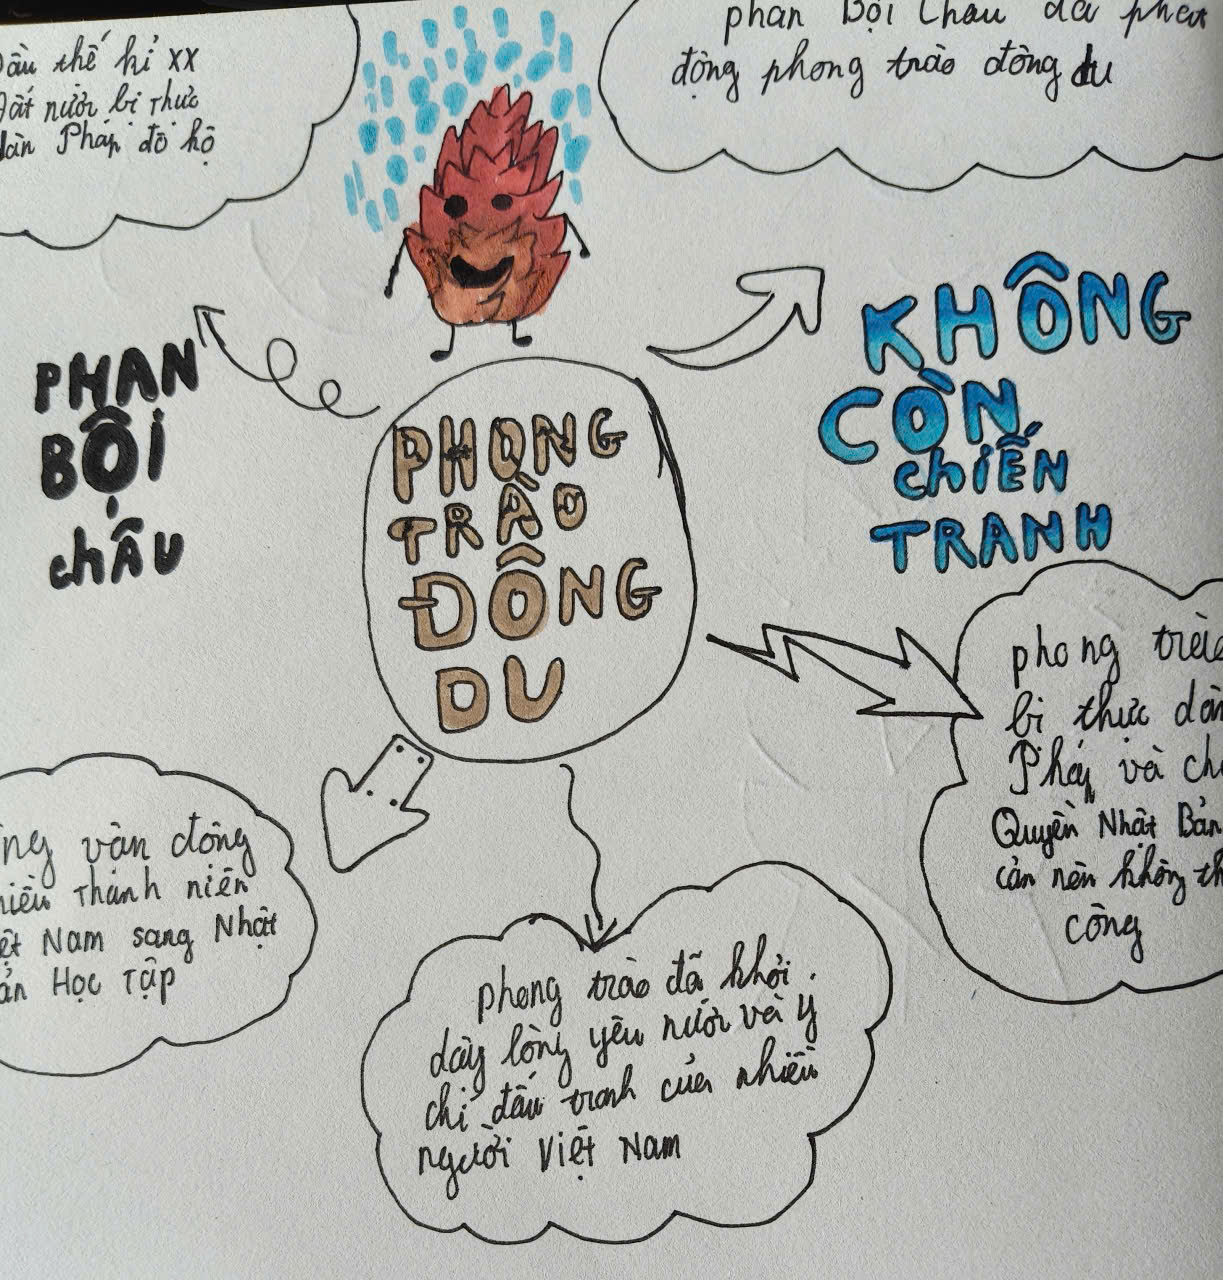 Đầu thế kỉ XX
Đất nước bị Thực
dân Pháp đô hộ
phan Bội Châu đã phát
động phong trào đông du
PHAN
BỘI
CHÂU
PHONG
TRÀO
ĐÔNG
DU
KHÔNG
CÒN
CHIẾN
TRANH
phong trào
bị thực dân
Pháp và
Quyền Nhật Bản
cản nên không
công
vận động
Thanh niên
Nam sang Nhật
Học Tập
phong trào đã khởi
dậy lòng yêu nước và ý
chí đấu tranh của nhiều
người Việt Nam